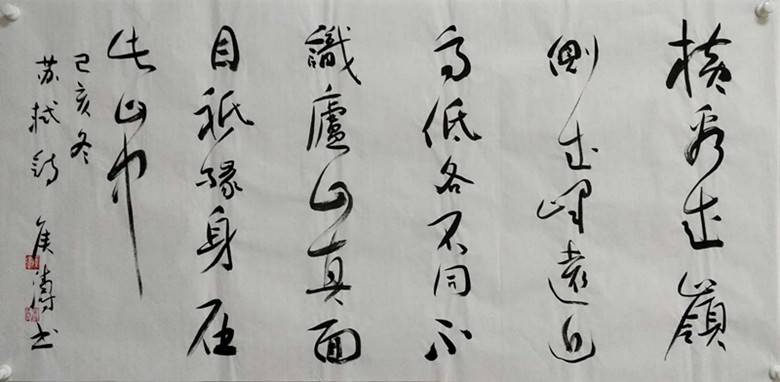 橫看成嶺
側成峰遠近
高低各不同不
識廬山真面
目祇緣身在
此山中
己亥冬
苏轼詩 侯濤书